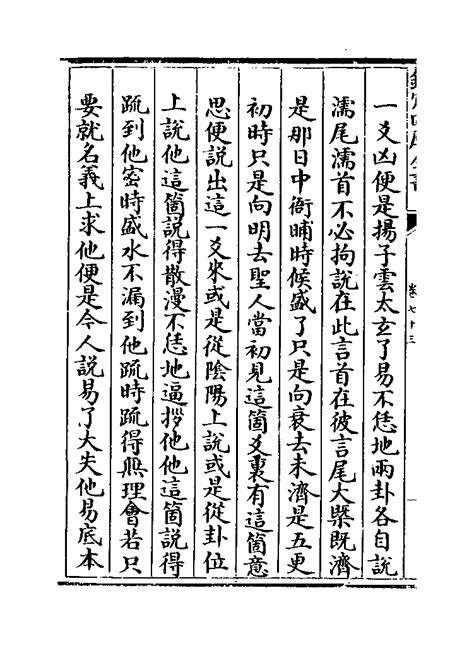 一爻凶便是揚子雲太玄了易不恁地兩卦各自說
濡尾濡首不必拘說在此言首在彼言尾大槩既濟
是那日中衙晡時候盛了只是向衰去未濟是五更
初時只是向明去聖人當初見這箇爻裏有這箇意
思便說出這一爻來或是從陰陽上說或是從卦位
上說他這箇說得散漫不恁地逼拶他他這箇說得
疏到他密時盛水不漏到他疏時疏得無理會若只
要就名義上求他便是今人說易了大失他易底本
欽定四庫全書
卷七十三